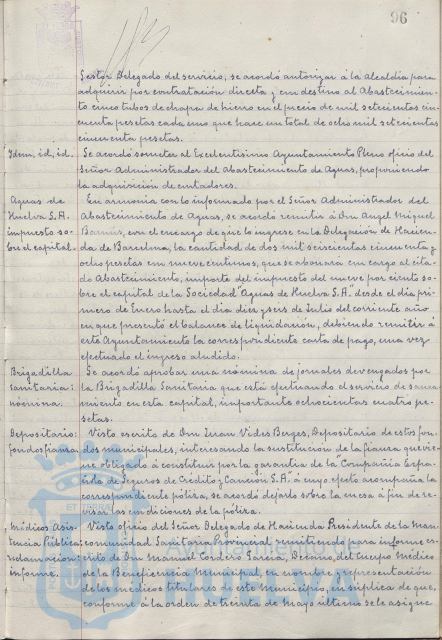 96
Gestor Delegado del servicio, se acordó autorizar á la Alcaldía para
adquirir por contratación directa y con destino al Abastecimien-
to cinco tubos de chapa de hierro en el precio de mil setecientas cin-
cuenta pesetas cada uno que hace un total de ocho mil setecientas
cincuenta pesetas.
Idem, id, id.
Se acordó someter al Excelentísimo Ayuntamiento Pleno oficio del
Señor Administrador del Abastecimiento de Aguas, proponiendo
la adquisición de contadores.
Aguas de
Huelva S.A.
impuesto so-
bre el capital.
En armonía con lo informado por el Señor Administrador del
Abastecimiento de Aguas, se acordó remitir á Don Angel Miguel
con el encargo de que lo ingrese en la Delegación de Hacien-
da de Barcelona, la cantidad de dos mil seiscientas cincuenta y
ocho pesetas con nueve centimos, que se abonará con cargo al cita-
do Abastecimiento, importe del impuesto del nueve por ciento so-
bre el capital de la Sociedad "Aguas de Huelva S.A." desde el dia pri-
mero de Enero hasta el dia diez y seis de Julio del corriente año
en que presentó el balance de liquidación, debiendo remitir á
este Ayuntamiento la correspondiente carta de pago, una vez
efectuado el ingreso aludido.
Brigadilla
Sanitaria:
nómina.
Se acordó aprobar una nómina de jornales devengados por
la Brigadilla Sanitaria que está efectuando el servicio de sanea-
miento en esta capital, importante ochocientas cuatro pe-
setas.
Depositario:
fondos fianza.
Visto escrito de Don Juan Vides Berges, Depositario de estos fon-
dos municipales, interesando la sustitución de la fianza que vie-
ne obligado á constituir por la garantía de la "Compañia Espa-
ñola de Seguros de Crédito y Caución S.A." á cuyo efecto acompaña la
correspondiente póliza, se acordó dejarlo sobre la mesa á fin de re-
visar las condiciones de la póliza.
Médicos Asis-
tencia Pública:
reclamación:
informe.
Visto oficio del Señor Delegado de Hacienda Presidente de la Man-
comunidad Sanitaria Provincial remitiendo para informe es-
crito de Don Manuel Cordero García, Decano del Cuerpo Médico
de la Beneficencia Municipal, en nombre y representación
de los médicos titulares de este Municipio, en súplica de que,
conforme á la orden de treinta de Mayo último se le asigne
HUELVA